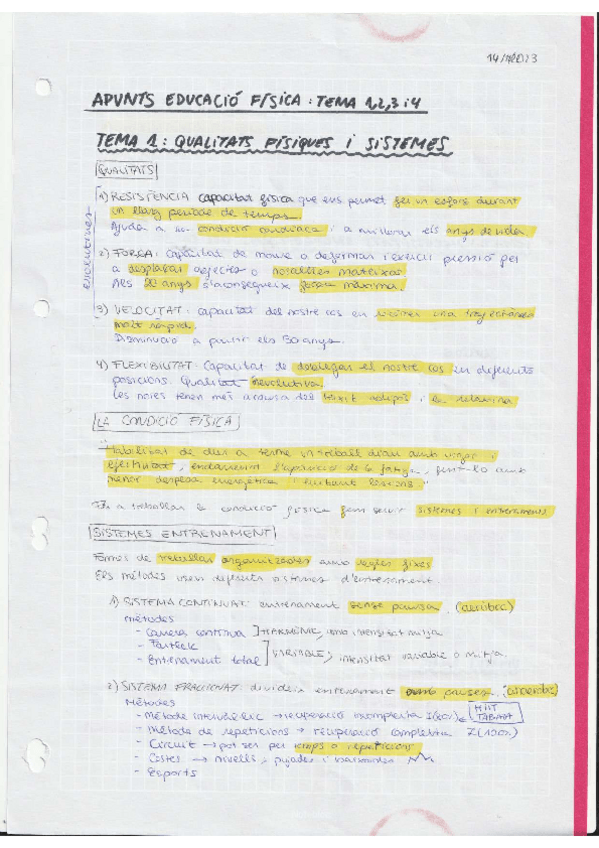 APUNTS EDUCACIÓ FÍSICA: TEMA 1,2,3 i 4
TEMA 1: QUALITATS FÍSIQUES i SISTEMES
QUALITATS
evolutives
1) RESISTÈNCIA capacitat física que ens permet fer un esforç durant
un llarg període de temps.
Ajuda a la condició cardíaca i a millorar els anys de vida.
2) FORÇA: Capacitat de moure o deformar i exercir pressió per
a desplaçar objectes o nosaltres mateixos.
Als 20 anys s'aconsegueix força màxima.
3) VELOCITAT: capacitat del nostre cos en una trajectòria
molt ràpid.
Disminució a partir els 30 anys.
4) FLEXIBILITAT: Capacitat de doblegar el nostre cos en diferents
posicions. Qualitat involutiva
Les noies tenen més a causa del teixit adipós i la relaxina
LA CONDICIÓ FÍSICA
"Habilitat de dur a terme un treball diari amb vigor i
efectivitat, endarrerint l'aparició de la fatiga, fent-lo amb
menor despesa energètica i evitant lesions"
Per a treballar la condició física fem servir sistemes i entrenaments
SISTEMES ENTRENAMENT
Formes de treballar organitzades amb regles fixes
Els mètodes usen diferents sistemes d'entrenament.
1) SISTEMA CONTINUAT: entrenament sense pauses. (aeròbic)
mètodes
- Carrera contínua ] HARMÒNIC, una intensitat mitja
- Fartlek
- Entrenament total ] VARIABLE, intensitat variable o mitja.
2) SISTEMA FRACCIONAT: divideix entrenament amb pauses. (anaeròbic)
Mètodes
- Mètode intervàlic → recuperació incompleta HIIT
TABATA
- Mètode de repeticions → recuperació completa I(100%)
- Circuit → pot ser per temps o repeticions
- Costes → nivells, pujades i baixades
- Esports